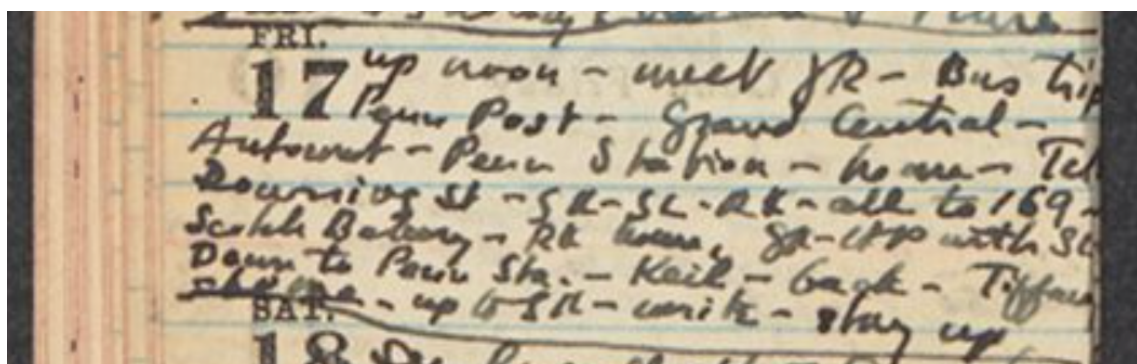 FRI.
17 up noon - meet JR - Bus trip
Penn Post - Grand Central -
Automat - Penn Station - home - Tel
Downing St - SK - SL - RK - all to 169 -
Scotch Bakery - RK home, with SL
Down to Penn Sta. - Keik - back - Tiffany
- home - up to SK - write - stay up
SAT.
18